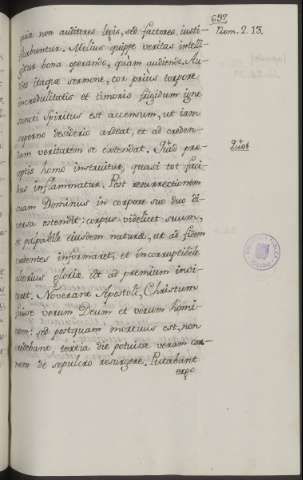 697
quia non auditores legis, sed factores justi-
Rom. 2. 13.
ficabuntur. Melius quippe veritas intelli-
gitur bona operando, quam audiendo. Au-
itaque sermone, cor prius torpore
incredulitatis et timoris frigidum igne
sancti Spiritus est accensum, ut jam
superno desiderio ardeat, et ad creden-
dam veritatem se extendat. Quid prę-
ceptis homo instruitur, quasi tot faci-
bus inflammatur. Post resurrectionem
etiam Dominus in corpore suo duo di-
versa ostendit: corpus videlicet suum,
et palpabile ejusdem naturæ, ut ad fidem
informaret, et incorruptibile
alterius gloriæ ut ad premium invi-
taret. Noverant Apostoli, Christum
verum Deum et verum homi-
nem: sed postquam mortuus est, non
credebant, tertia die potuisse veram car-
nem de sepulcro resurgere. Putabant
ergo